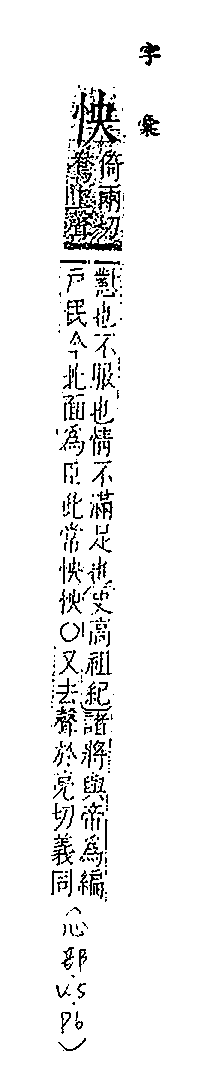 字彙
怏
倚兩切
鴦上聲
懟也不服也情不滿足也史高祖紀諸將與帝為編
戶民今北面為臣此常怏怏〇又去聲於亮切義同
(心部
v.5
P6)